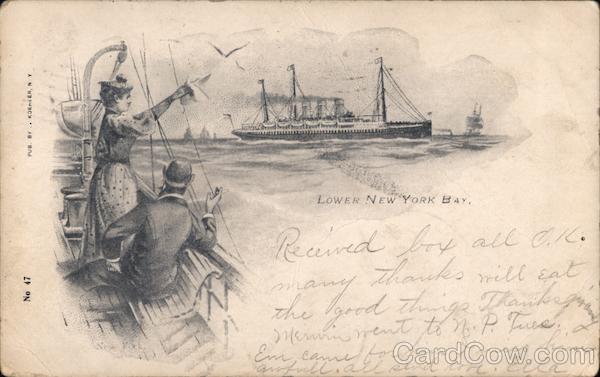 PUB. BY. A. KOEHLER, N.Y.
No 47
LOWER NEW YORK BAY.
Received box all O.K.
many thanks will eat
the good things Thanksgiving
Merwin went to N.P. Tues. &
Em. came
awfull. all
CardCow.com